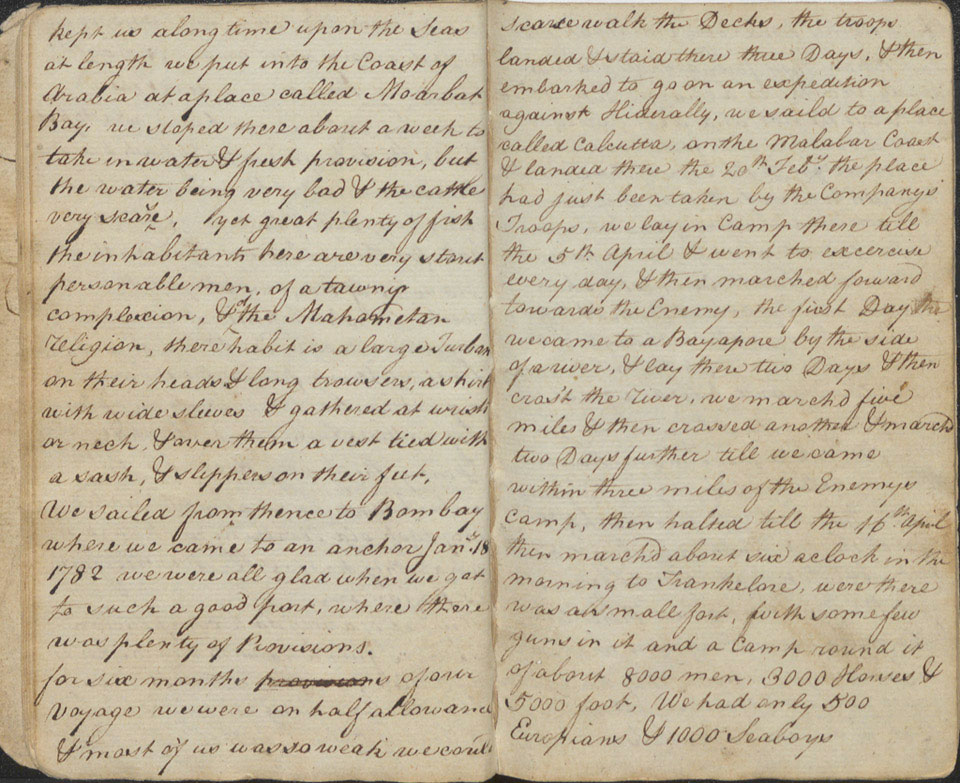 kept us along time upon the Seas
at length we put into the Coast of
Arabia at a place called Moarbat
Bay, we stoped there about a week to
take in water & fresh provision, but
the water being very bad & the cattle
very scarse, yet great plenty of fish
the inhabitants here are very stout
personable men, of a tawny
complexion, & of the Mahometan
religion, there habit is a large Turban
on their heads & long trowsers, a shirt
with wide sleeves & gathered at wrist
or neck, & over them a vest tied with
a sash, & slippers on their feet,
We sailed from thence to Bombay
where we came to an anchor Jany. 18
1782 we were all glad when we got
to such a good port, where there
was plenty of Provisions.
for six months provisions of our
Voyage we were on half allowance
& most of us was so weak we could
scarce walk the Decks, the troops
landed & staid there three Days, & then
embarked to go on an expedition
against Hiderally, we saild to a place
called Calcutta, on the Malabar Coast
& landed there the 20th Feby. the place
had just been taken by the Companys
Troops, we lay in Camp there till
the 5th April & went to excercise
every day, & then marched forward
towards the Enemy, the first Day the
we came to a Bayapore by the side
of a river, & lay there two Days & then
cras't the river, we march'd five
miles & then crossed another & march'd
two Days further till we came
within three miles of the Enemys
Camp, then halted till the 16th April
then march'd about six aclock in the
morning to Trankelore, were there
was a small fort, with some few
guns in it and a Camp round it
of about 8000 men, 3000 Horses &
5000 foot, We had only 500
Europians & 1000 Seaboys